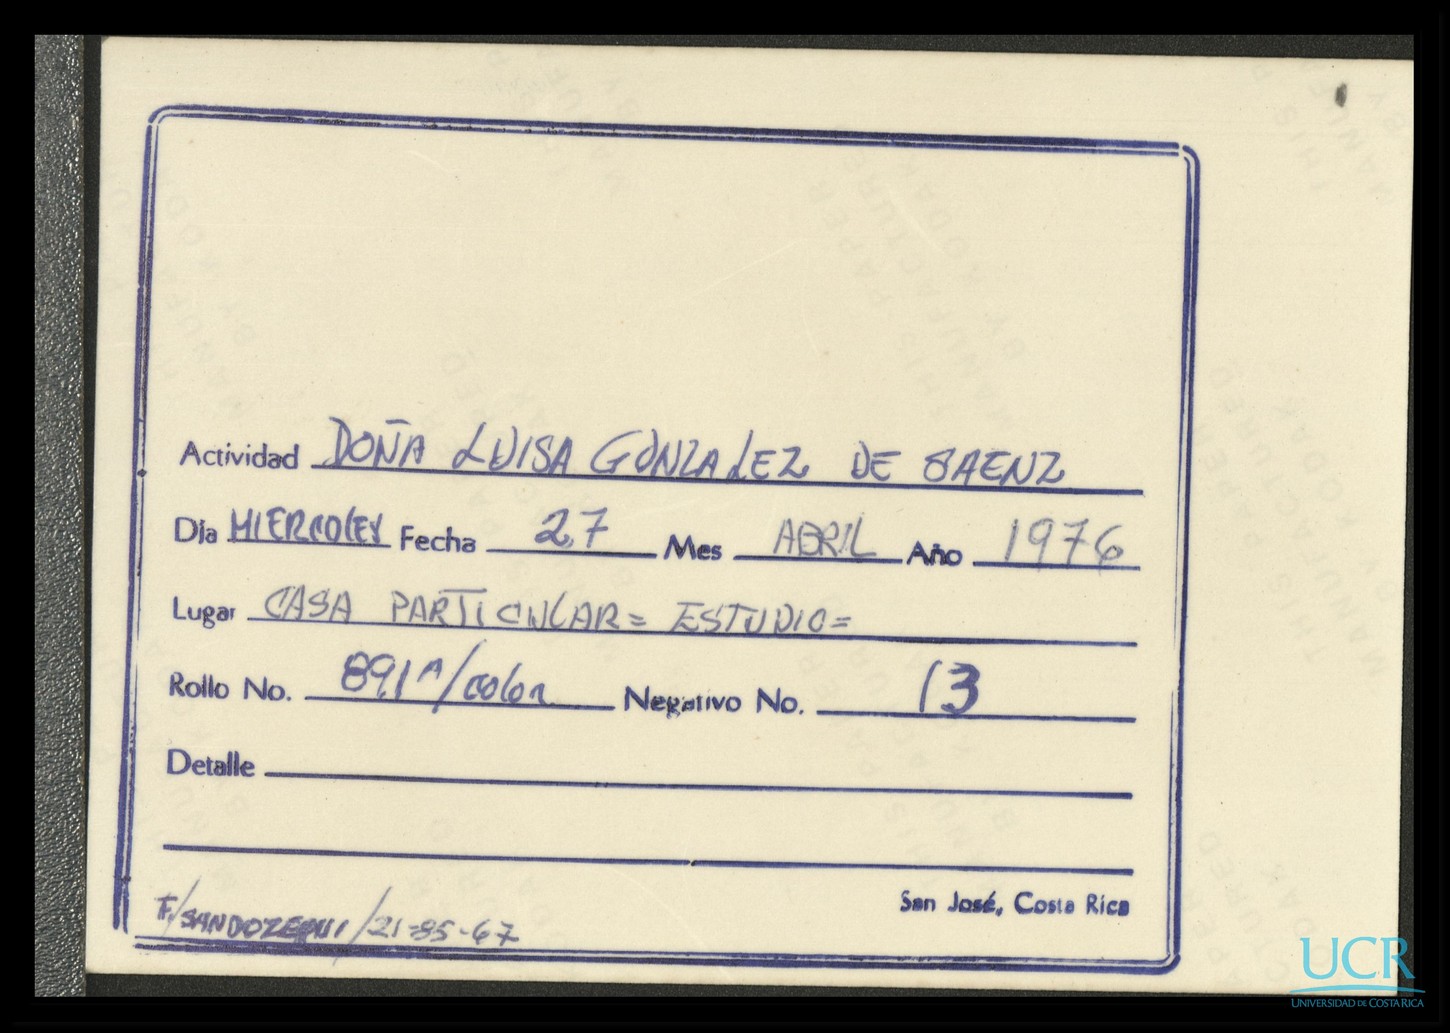 Actividad DOÑA LUISA GONZALEZ DE SAENZ
Día MIERCOLES Fecha 27 Mes ABRIL Año 1976
Lugar CASA PARTICULAR= ESTUDIO=
Rollo No. 891A/color Negativo No. 13
Detalle
San José, Costa Rica
F/ /21-85-67
UCR
UNIVERSIDAD DE COSTA RICA